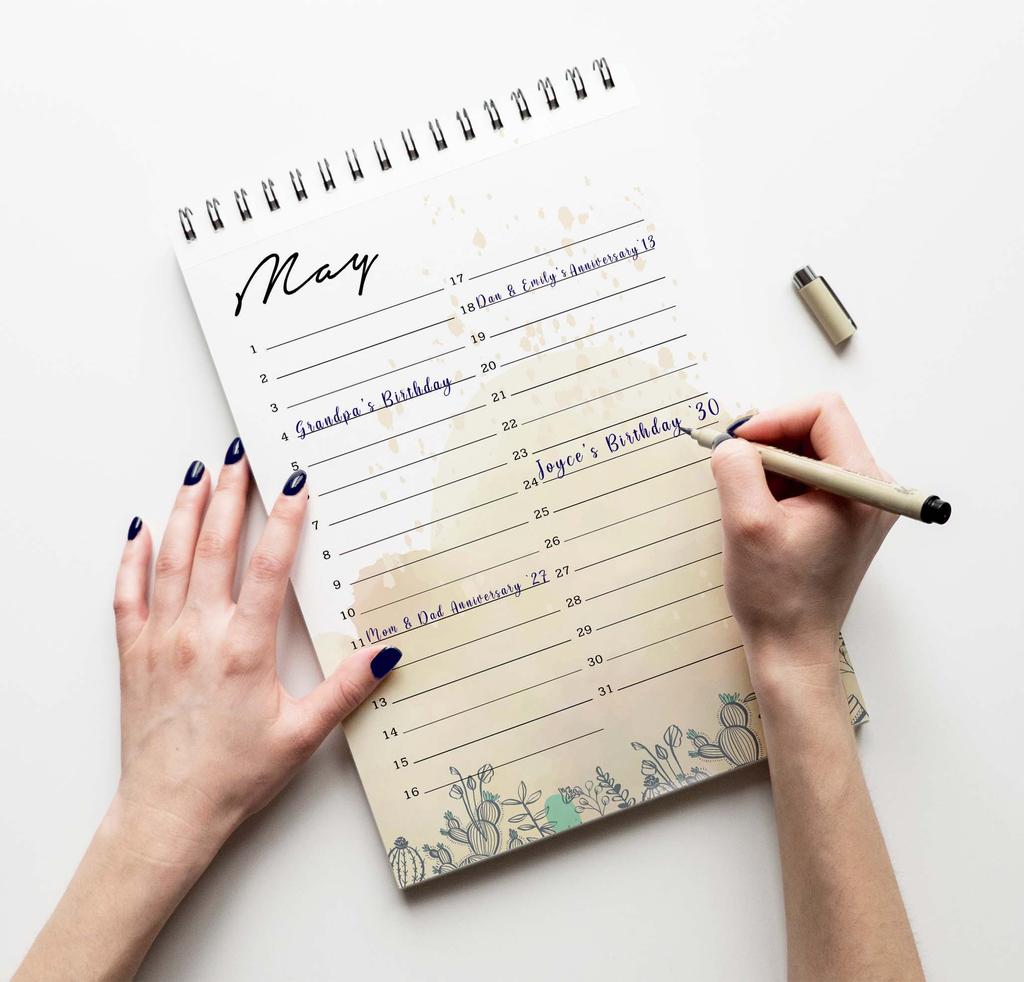 May
1
2
3
4 Grandpa's Birthday
5
7
8
9
10
11 Mom & Dad Anniversary '27
13
14
15
16
17
18 Dan & Emily's Anniversary '13
19
20
21
22
23
24 Joyce's Birthday '30
25
26
27
28
29
30
31